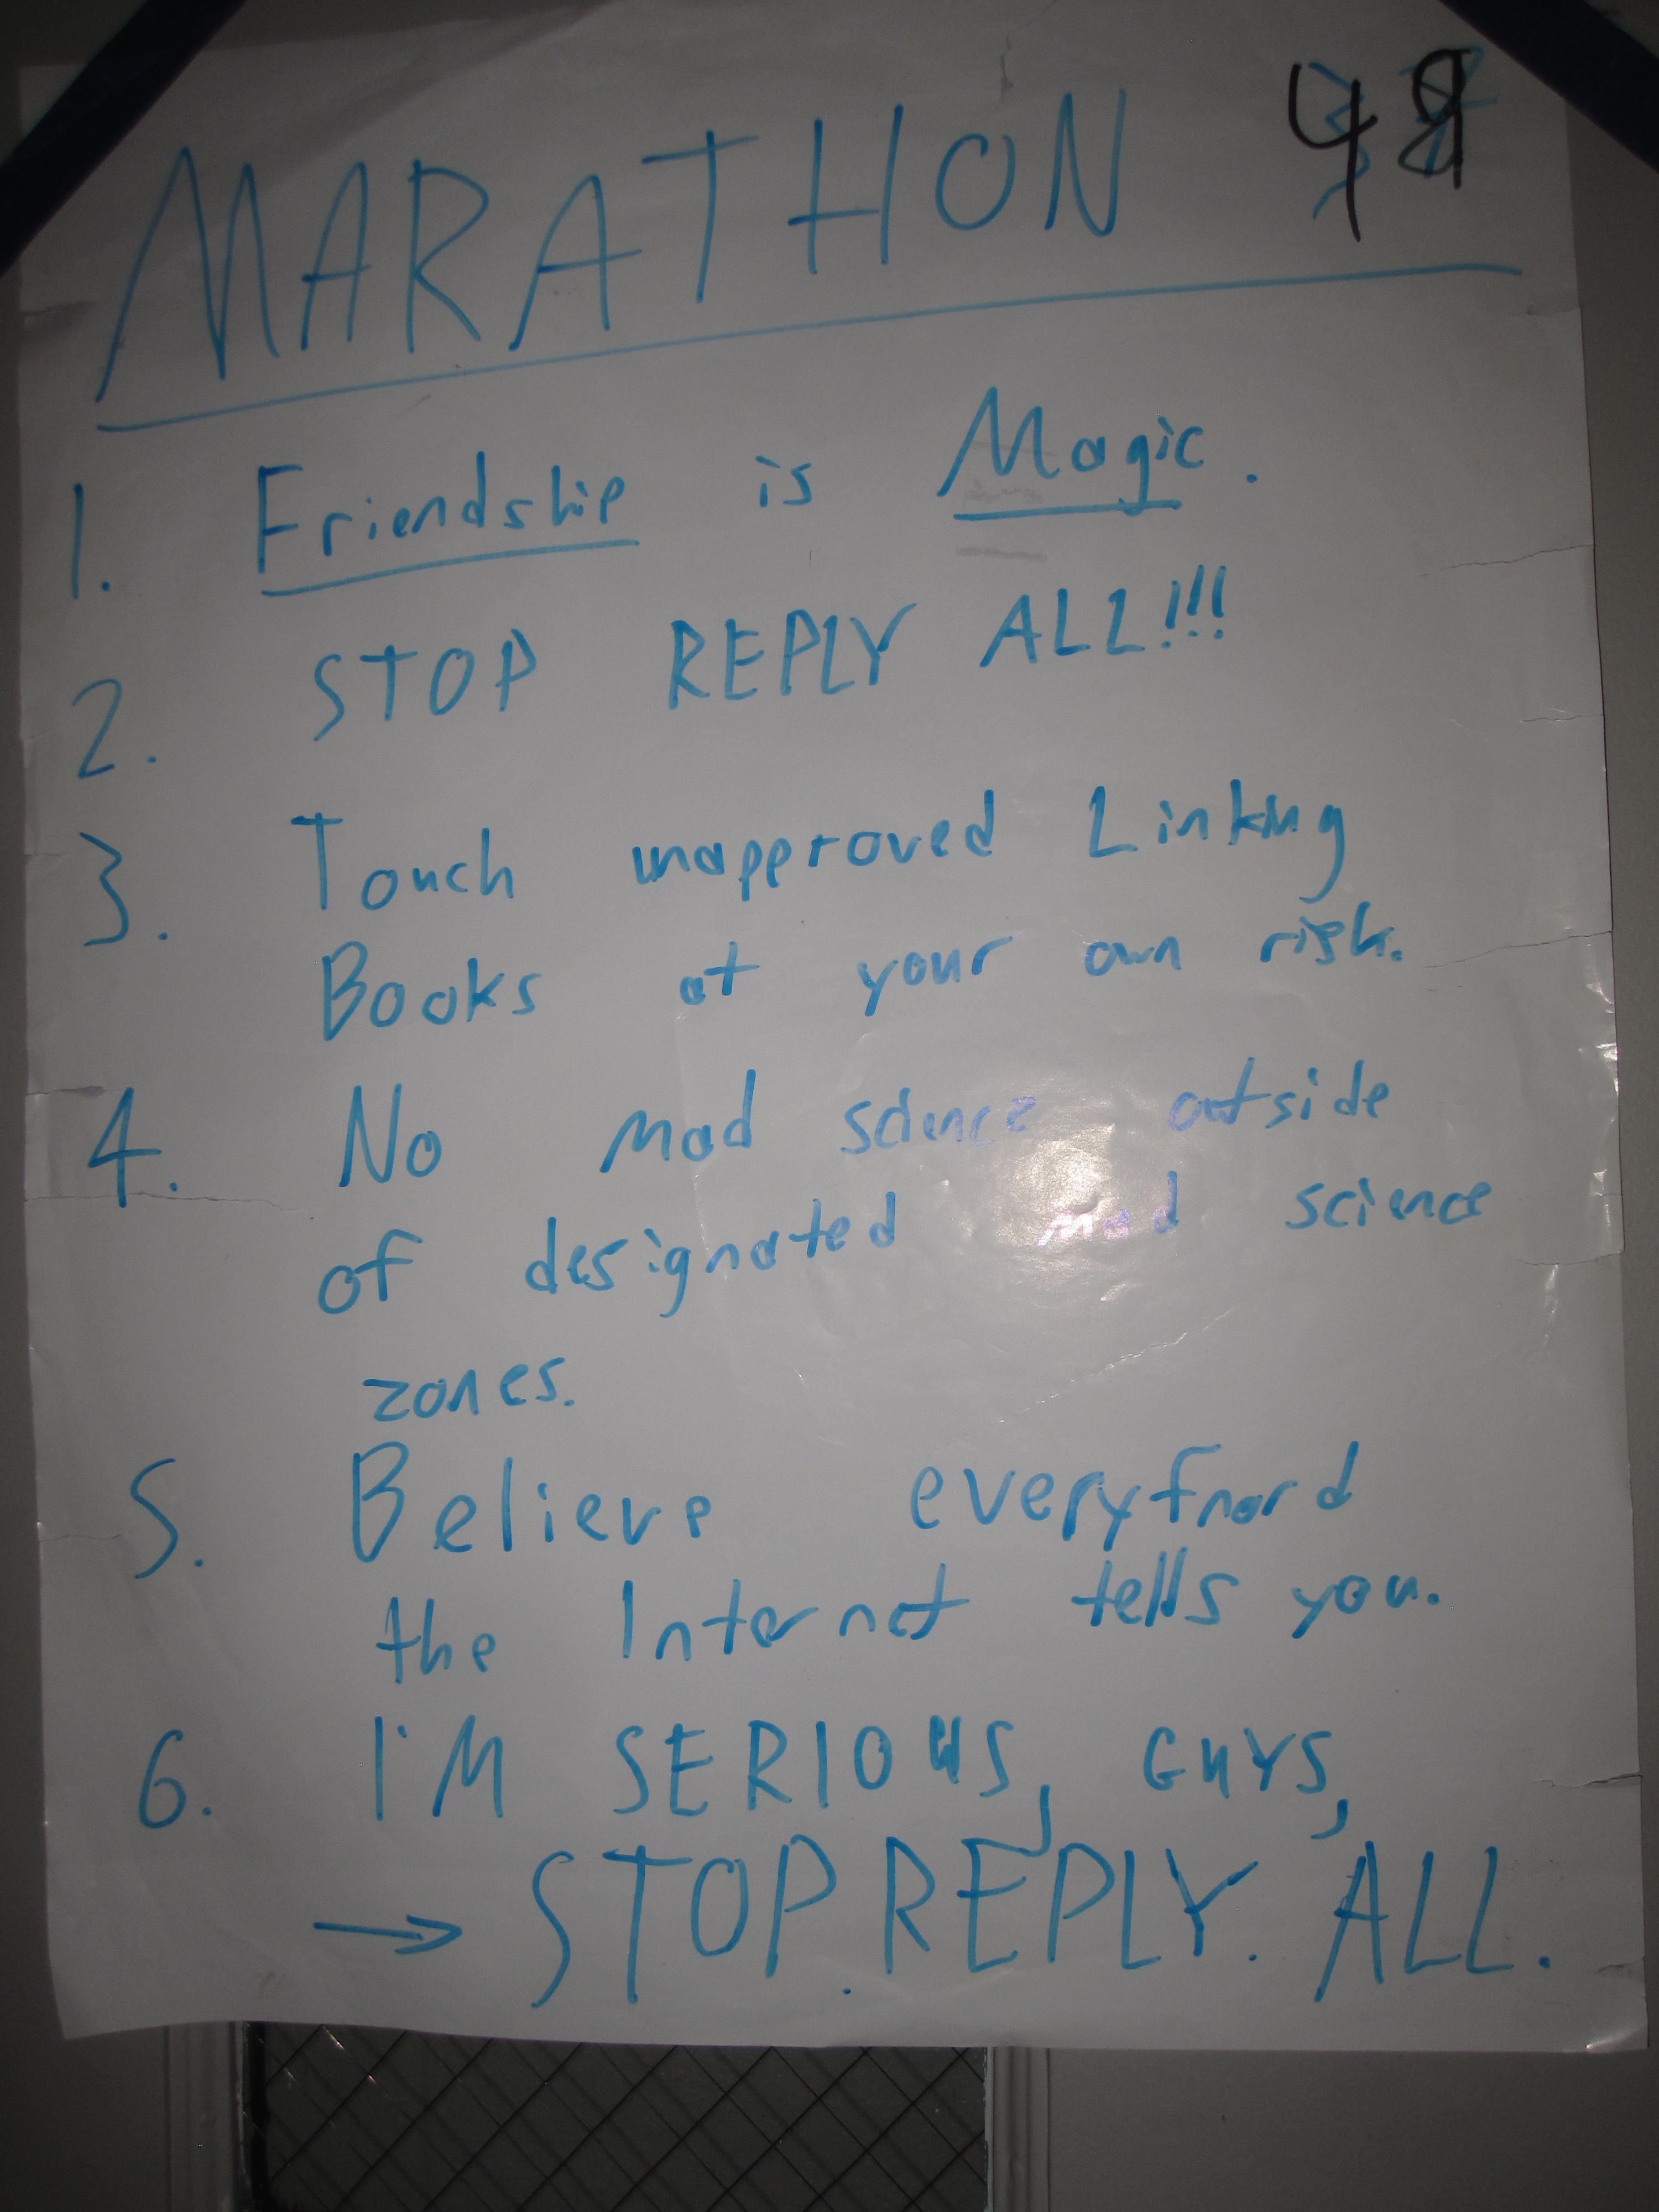 MARATHON 49
1. Friendship is Magic.
2. STOP REPLY ALL!!!
3. Touch unapproved Linking
Books at your own risk.
4. No mad science outside
of designated mad science
zones.
5. Believe everyfnord
the Internet tells you.
6. I'M SERIOUS, GUYS,
→ STOP. REPLY. ALL.